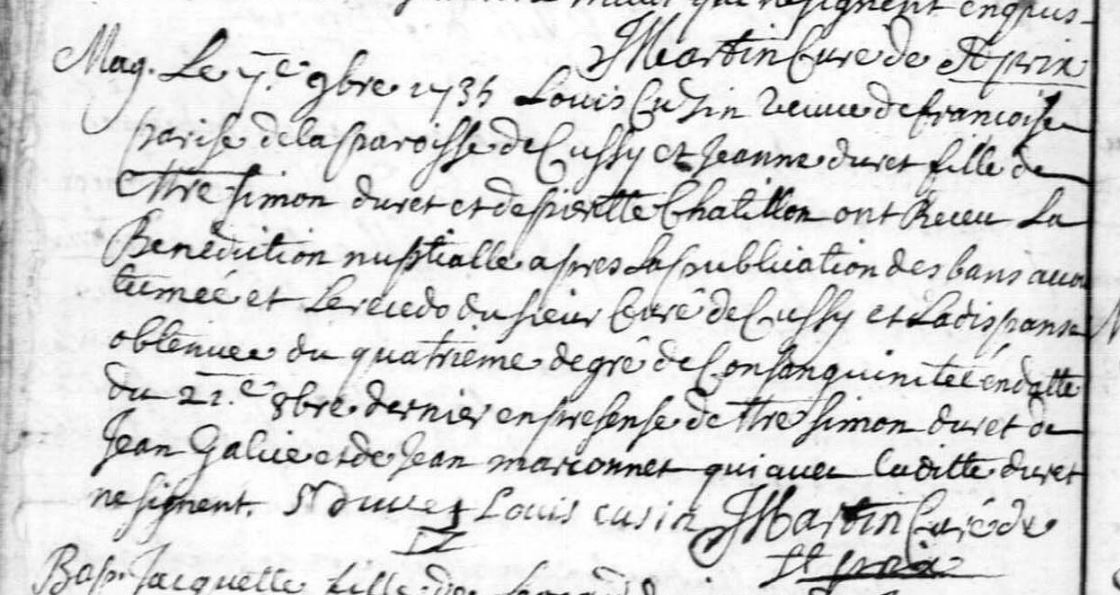 que ne signent enquis
JMartin Curé de St prix
Mag. Le 7.e 9bre 1735 Louis Cuzin veuve de francoise
parise de la paroisse de Cussy et Jeanne duret fille de
Mtre simon duret et de pierette Chatillon ont Receu La
Benediction nuptialle apres La publication des bans accou
tumée et Le recedo du sieur Curé de Cussy et La dispanse
obtenuee du quatrieme degré de Consanguinitéé en datte
du 22.e 8bre dernier en presense de Mtre simon duret de
Jean Galice et de Jean marconnet qui avec laditte duret
ne signent. S duret Louis cusin JMartin Curé de
St prix
Bap. Jacquette fille de